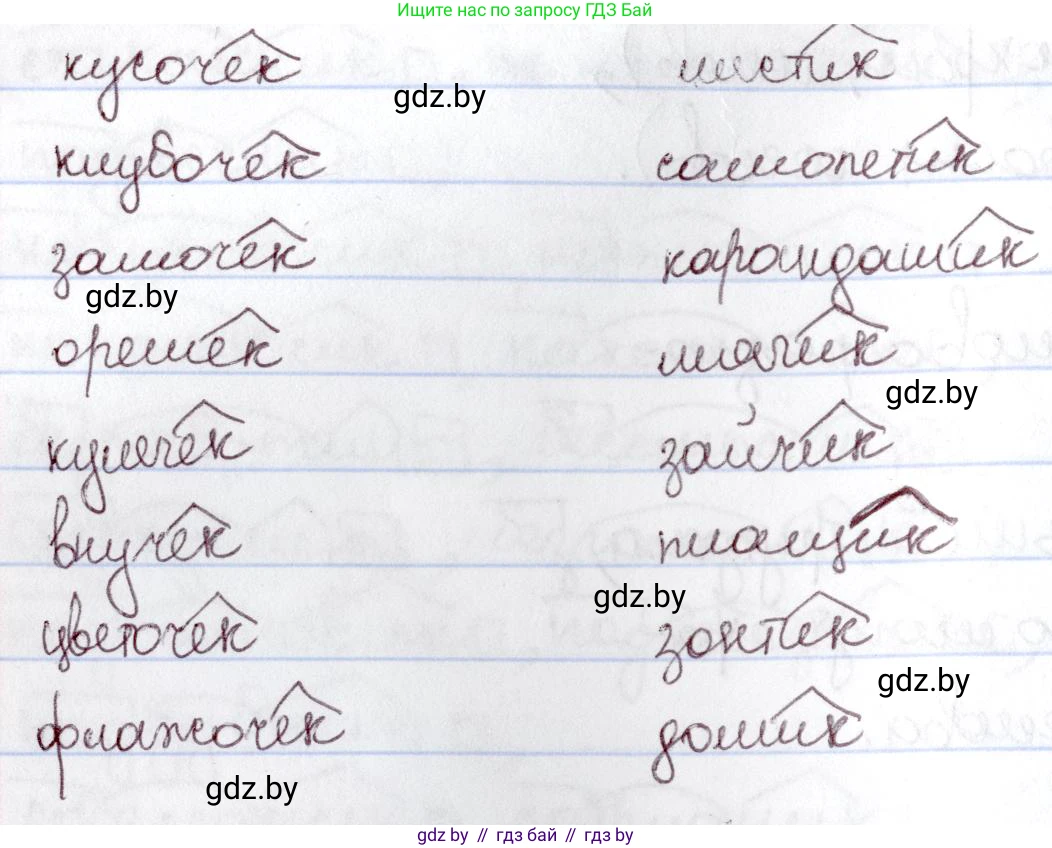 Ищите нас по запросу ГДЗ Бай
кусочек листик
gdz.by
клубочек самолетик
замочек карандашик
gdz.by
орешек мячик
gdz.by
кулечек зайчик
внучек плащик
gdz.by
цветочек зонтик
gdz.by
флажочек домик
gdz.by
gdz by // гдз бай // гдз by